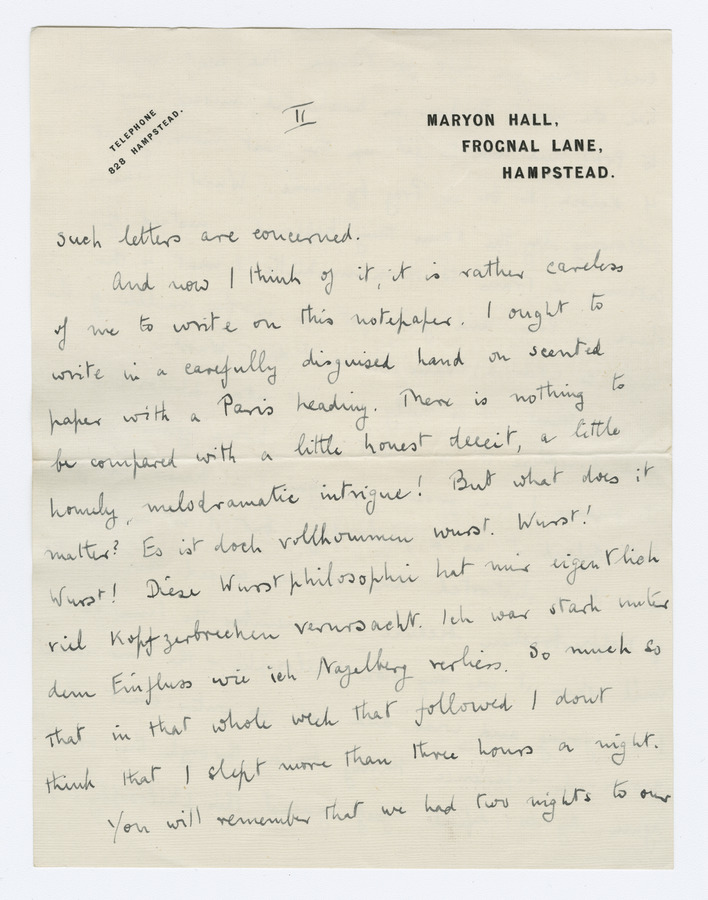 TELEPHONE
828 HAMPSTEAD.
II
MARYON HALL,
FROGNAL LANE,
HAMPSTEAD.
such letters are concerned.
And now I think of it, it is rather careless
of me to write on this notepaper. I ought to
write in a carefully disguised hand on scented
paper with a Paris heading. There is nothing to
be compared with a little honest deceit, a little
homely, melodramatic intrigue! But what does it
matter? Es ist doch vollkommen wurst. Wurst!
Wurst! Diese Wurstphilosophie hat mir eigentlich
viel Kopfzerbrechen verursacht. Ich war stark unter
dem Einfluss wie ich Nagelberg verliess. So much so
that in that whole week that followed I dont
think that I slept more than three hours a night.
You will remember that we had two nights to our